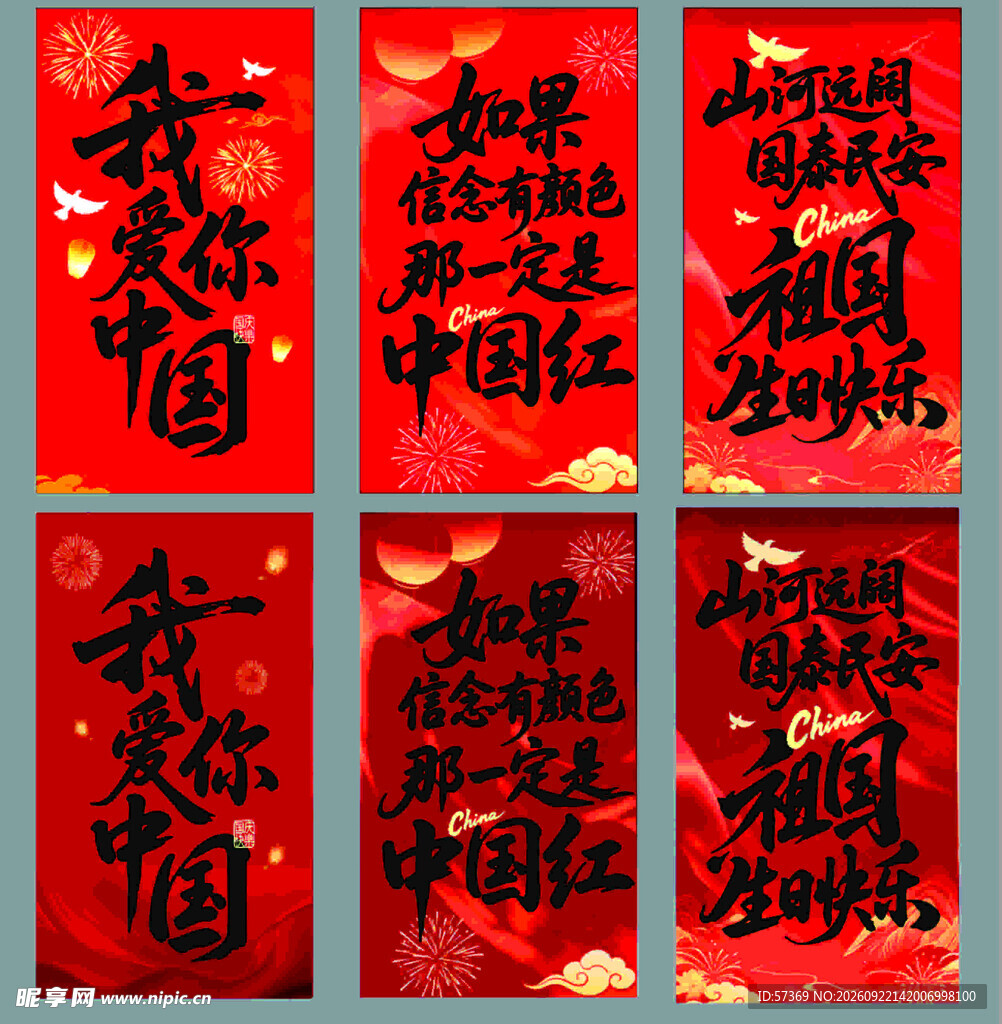 我
爱你
中国
如果
信念有颜色
那一定是
China
中国红
山河远阔
国泰民安
China
祖国
生日快乐
我
爱你
中国
如果
信念有颜色
那一定是
China
中国红
山河远阔
国泰民安
China
祖国
生日快乐
昵享网 www.nipic.cn
ID:57369 NO:20260922142006998100